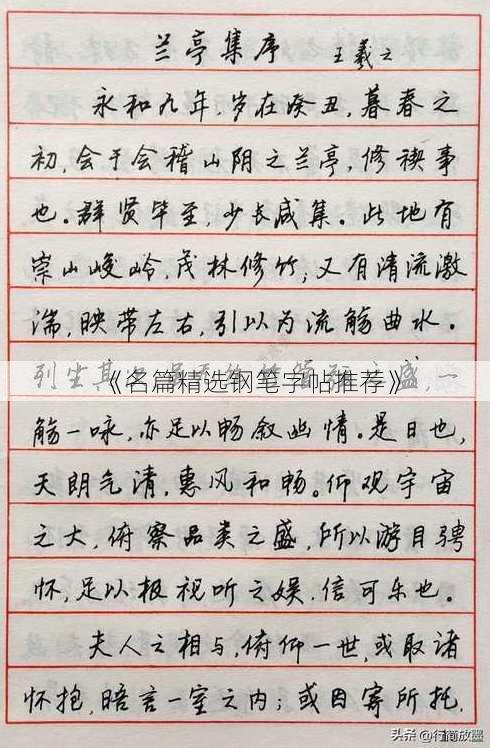 兰亭集序 王羲之
永和九年,岁在癸丑,暮春之
初,会于会稽山阴之兰亭,修禊事
也。群贤毕至,少长咸集。此地有
崇山峻岭,茂林修竹;又有清流激
湍,映带左右,引以为流觞曲水。
列坐其 盛,一
《名篇精选钢笔字帖推荐》
觞一咏,亦足以畅叙幽情。是日也,
天朗气清,惠风和畅。仰观宇宙
之大,俯察品类之盛,所以游目骋
怀,足以极视听之娱,信可乐也。
夫人之相与,俯仰一世,或取诸
怀抱,晤言一室之内;或因寄所托,
头条 @行简放墨